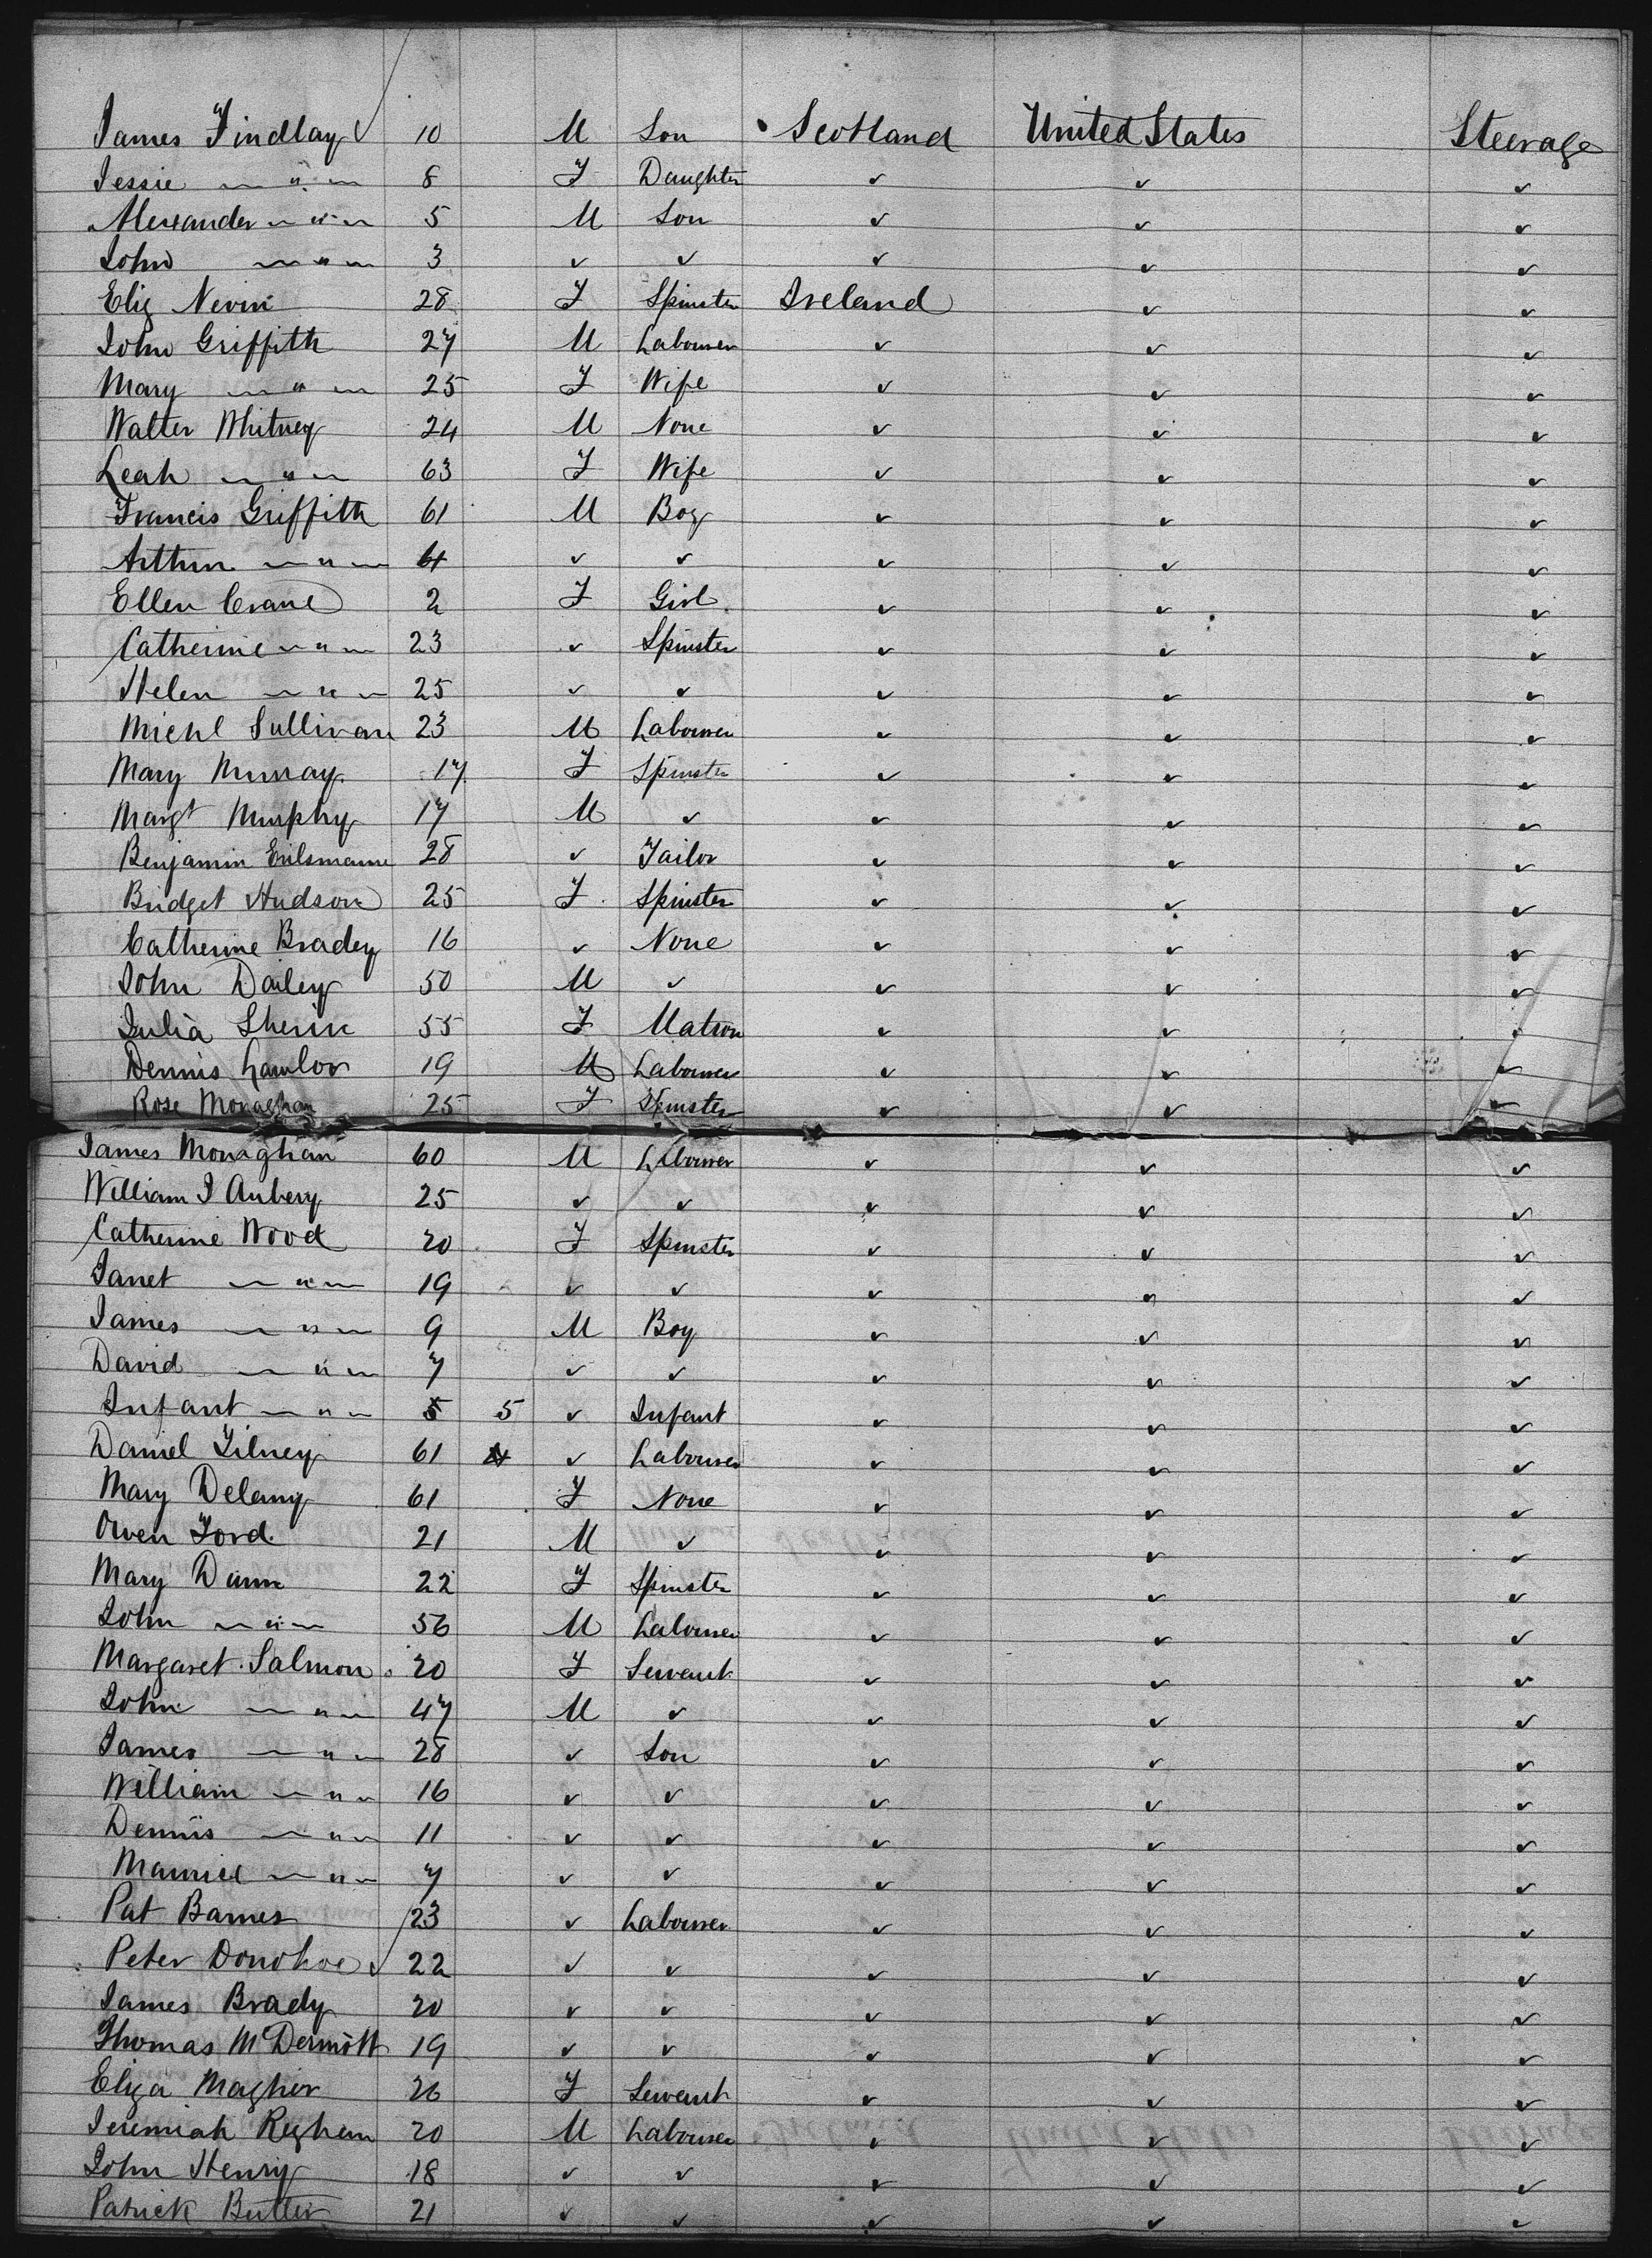 James Findlay ✓ 10 M Son Scotland United States Steerage
Jessie — " — 8 F Daughter ✓ ✓ ✓
Alexander — " — 5 M Son ✓ ✓ ✓
John — " — 3 ✓ ✓ ✓ ✓ ✓
Eliz Nevin 28 F Spinster Ireland ✓ ✓
John Griffith 27 M Labourer ✓ ✓ ✓
Mary — " — 25 F Wife ✓ ✓ ✓
Walter Whitney 24 M None ✓ ✓ ✓
Leah — " — 63 F Wife ✓ ✓ ✓
Francis Griffith 61 M Boy ✓ ✓ ✓
Arthur — " — ✓ ✓ ✓ ✓ ✓
Ellen Crane 2 F Girl ✓ ✓ ✓
Catherine — " — 23 ✓ Spinster ✓ ✓ ✓
Helen — " — 25 ✓ ✓ ✓ ✓ ✓
Michl Sullivan 23 M Labourer ✓ ✓ ✓
Mary Murray 17 F Spinster ✓ ✓ ✓
Margt Murphy 17 M ✓ ✓ ✓ ✓
Benjamin 28 ✓ Tailor ✓ ✓ ✓
Bridget Hudson 25 F Spinster ✓ ✓ ✓
Catherine Bradey 16 ✓ None ✓ ✓ ✓
John Dailey 50 M ✓ ✓ ✓ ✓
Julia Sherin 55 F Matron ✓ ✓ ✓
Dennis Lawlor 19 M Labourer ✓ ✓ ✓
Rose Monaghan 25 F Spinster ✓ ✓ ✓
James Monaghan 60 M Labourer ✓ ✓ ✓
William J Aubery 25 ✓ ✓ ✓ ✓ ✓
Catherine Wood 20 F Spinster ✓ ✓ ✓
Janet — " — 19 ✓ ✓ ✓ ✓ ✓
James — " — 9 M Boy ✓ ✓ ✓
David — " — 7 ✓ ✓ ✓ ✓ ✓
Infant — " — 5 5 ✓ Infant ✓ ✓ ✓
Daniel Filney 61 ✓ Labourer ✓ ✓ ✓
Mary Delany 61 F None ✓ ✓ ✓
Owen Ford 21 M ✓ ✓ ✓ ✓
Mary Dunn 22 F Spinster ✓ ✓ ✓
John — " — 56 M Labourer ✓ ✓ ✓
Margaret Salmon 20 F Servant ✓ ✓ ✓
John — " — 47 M ✓ ✓ ✓ ✓
James — " — 28 ✓ Son ✓ ✓ ✓
William — " — 16 ✓ ✓ ✓ ✓ ✓
Dennis — " — 11 ✓ ✓ ✓ ✓ ✓
Maurice — " — 7 ✓ ✓ ✓ ✓ ✓
Pat Barnes 23 ✓ Labourer ✓ ✓ ✓
Peter Donohoe ✓ 22 ✓ ✓ ✓ ✓ ✓
James Brady 20 ✓ ✓ ✓ ✓ ✓
Thomas McDermott 19 ✓ ✓ ✓ ✓ ✓
Eliza Magher 26 F Servant ✓ ✓ ✓
Jeremiah 20 M Labourer ✓ ✓ ✓
John Henry 18 ✓ ✓ ✓ ✓ ✓
Patrick Butler 21 ✓ ✓ ✓ ✓ ✓